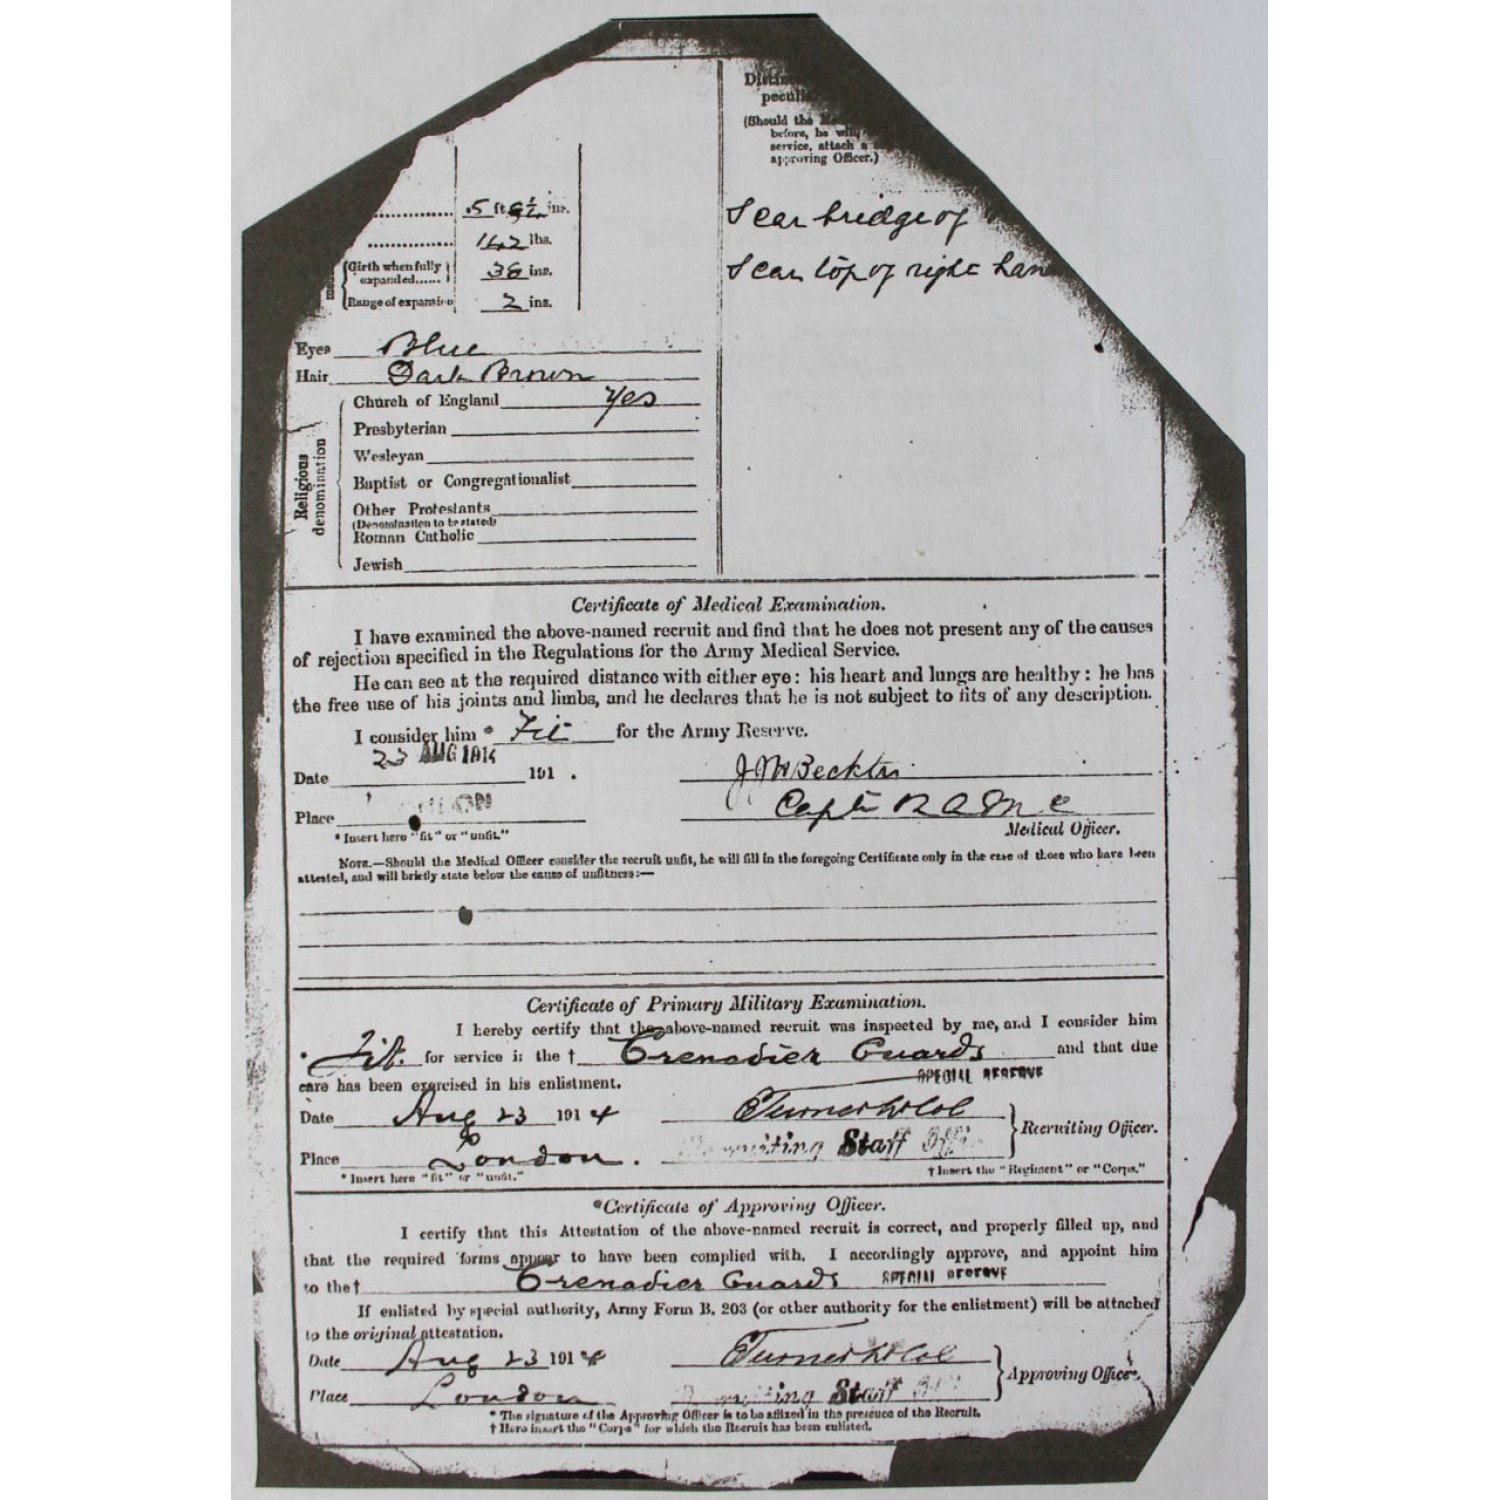 peculi
(Should the
before, he will
service, attach a
approving Officer.)
5 ft. 9½ ins.
162 lbs.
Girth when fully expanded...... 38 ins.
Range of expansion 2 ins.
Scar bridge of
Scar top of right han
Eyes Blue
Hair Dark Brown
Religious denomination
Church of England Yes
Presbyterian
Wesleyan
Baptist or Congregationalist
Other Protestants
(Denomination to be stated)
Roman Catholic
Jewish
Certificate of Medical Examination.
I have examined the above-named recruit and find that he does not present any of the causes
of rejection specified in the Regulations for the Army Medical Service.
He can see at the required distance with either eye: his heart and lungs are healthy: he has
the free use of his joints and limbs, and he declares that he is not subject to fits of any description.
I consider him * Fit for the Army Reserve.
23 AUG 1914
Date 191 .
Capt RAMC
Place
Medical Officer.
* Insert here "fit" or "unfit."
NOTE.—Should the Medical Officer consider the recruit unfit, he will fill in the foregoing Certificate only in the case of those who have been
attested, and will briefly state below the cause of unfitness:—
Certificate of Primary Military Examination.
I hereby certify that the above-named recruit was inspected by me, and I consider him
* Fit. for service in the † Grenadier Guards and that due
SPECIAL RESERVE
care has been exercised in his enlistment.
Date Aug 23 1914 Turner Lt Col
Recruiting Officer.
Place London. Recruiting Staff Office
* Insert here "fit" or "unfit." † Insert the "Regiment" or "Corps."
*Certificate of Approving Officer.
I certify that this Attestation of the above-named recruit is correct, and properly filled up, and
that the required forms appear to have been complied with. I accordingly approve, and appoint him
to the† Grenadier Guards SPECIAL RESERVE
If enlisted by special authority, Army Form B. 203 (or other authority for the enlistment) will be attached
to the original attestation.
Date Aug 23 1914 Turner Lt Col
Approving Officer.
Place London Recruiting Staff
* The signature of the Approving Officer is to be affixed in the presence of the Recruit.
† Here insert the "Corps" for which the Recruit has been enlisted.